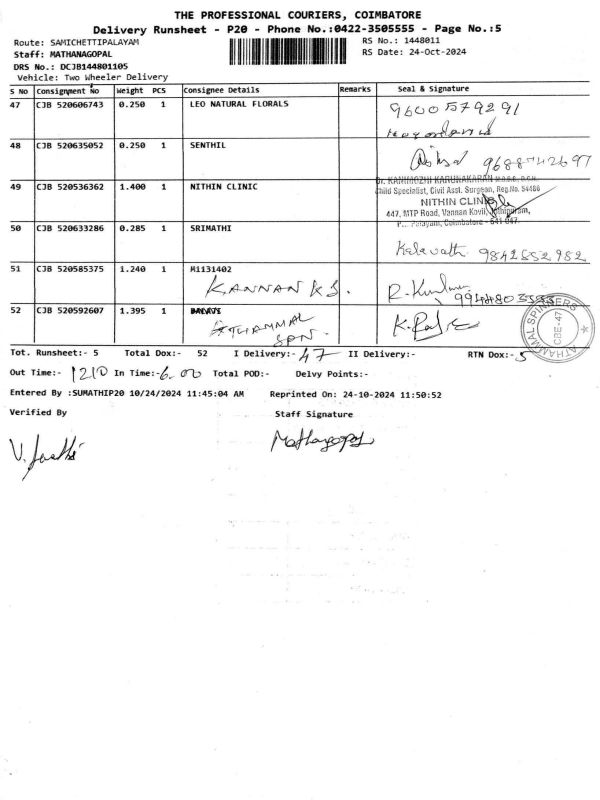 THE PROFESSIONAL COURIERS, COIMBATORE
Delivery Runsheet - P20 - Phone No.:0422-3505555 - Page No.:5
Route: SAMICHETTIPALAYAM
RS No.: 1448011
Staff: MATHANAGOPAL
RS Date: 24-Oct-2024
DRS No.: DCJB144801105
Vehicle: Two Wheeler Delivery
S No Consignment No Weight PCS Consignee Details Remarks Seal & Signature
47 CJB 520606743 0.250 1 LEO NATURAL FLORALS 9600579291
48 CJB 520635052 0.250 1 SENTHIL 9688742697
Dr. KANIMOZHI KARUNAKARAN
49 CJB 520536362 1.400 1 NITHIN CLINIC Child Specialist, Civil Asst. Surgeon, Reg.No. 54486
NITHIN CLINIC
447, MTP Road, Vannan Kovil,
Palayam, Coimbatore - 641 047.
50 CJB 520633286 0.285 1 SRIMATHI
Kalavathi 9842552982
51 CJB 520585375 1.240 1 M1131402
KANNAN K S. R. Kumar
52 CJB 520592607 1.395 1
ATHAMMAL
SPN.
ATHAMMAL SPINNERS
CBE-47
Tot. Runsheet:- 5 Total Dox:- 52 I Delivery:- 47 II Delivery:- RTN Dox:- 5
Out Time:- 1210 In Time:- 6.00 Total POD:- Delvy Points:-
Entered By :SUMATHIP20 10/24/2024 11:45:04 AM Reprinted On: 24-10-2024 11:50:52
Verified By Staff Signature
Mathanagopal